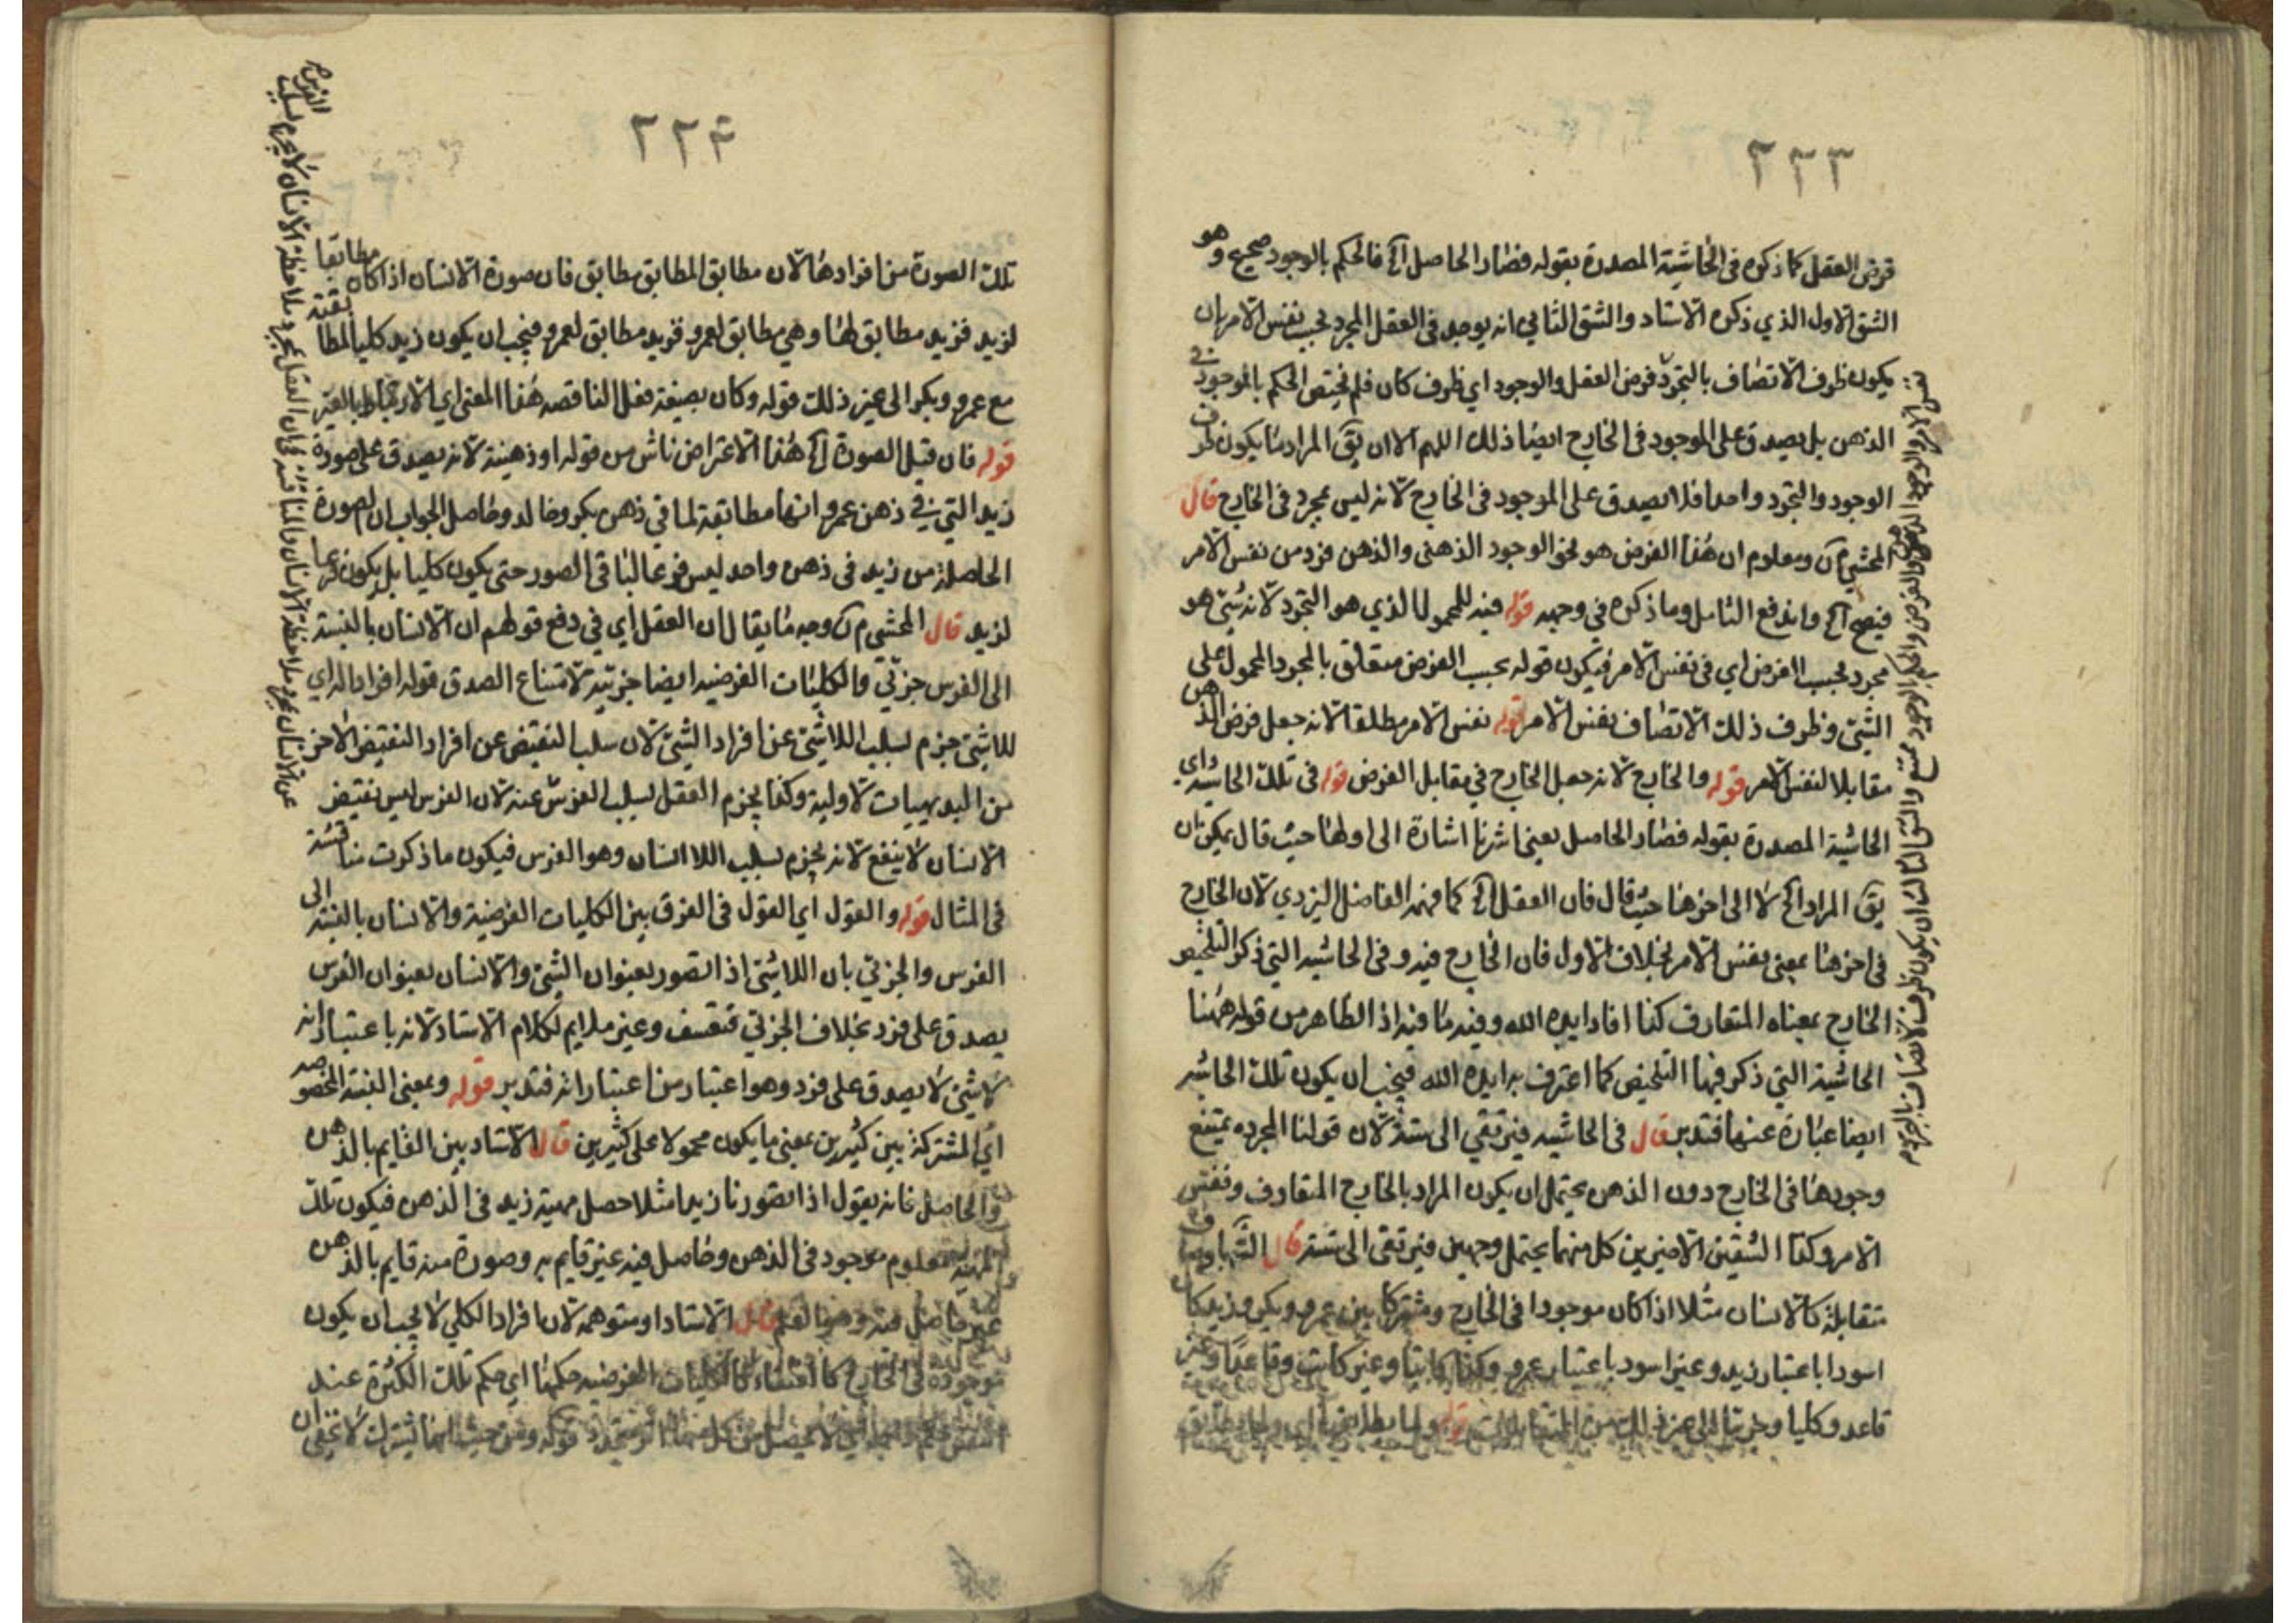 ٢٢٣
فرض العقل كما ذكره فى الحاشية المصدرة بقوله فصار الحاصل آه فالحكم بالوجود صحيح وهو
الشق الاول الذي ذكره الاستاد والشق الثاني انه يوجد فى العقل المجرد بحسب نفس الامر بان
يكون ظرف الاتصاف بالتجرد فرض العقل والوجود اي ظرف كان فلم يختص الحكم بالموجود في
الذهن بل يصدق على الموجود فى الخارج ايضا ذلك اللهم الا ان يق المراد ما يكون ظرف
الوجود والتجرد واحدا فلا يصدق على الموجود فى الخارج لانه ليس بمجرد فى الخارج قال
المحشي ومعلوم ان هذا الفرض هو نحو الوجود الذهنى والذهن فرد من نفس الامر
فيصح آه واندفع التامل وما ذكره فى وجهه قوله فيه للمحمول الذي هو التجرد لانه شيئ هو
مجرد بحسب الفرض اي فى نفس الامر فيكون قوله بحسب الفرض متعلق بالمجرد المحمول على
الشيئ وظرف ذلك الاتصاف نفس الامر قوله نفس الامر مطلقا لانه جعل فرض الذهن
مقابلا لنفس الامر قوله والخارج لانه جعل الخارج في مقابل الفرض قوله فى تلك الحاشية اي
الحاشية المصدرة بقوله فصار الحاصل يعنى اشرنا اشارة الى اولها حيث قال يمكن ان
يق المراد آه لا الى اخرها حيث قال فان العقل آه كما فهمه الفاضل اليزدي لان الخارج
فى اخرها بمعنى نفس الامر بخلاف الاول فان الخارج فيه وفى الحاشية التي ذكر التلخيص
الخارج بمعناه المتعارف كذا افاد ايده الله وفيه ما فيه اذ الظاهر من قوله ههنا
الحاشية التي ذكر فيها التلخيص كما اعترف به ايده الله فيجب ان يكون تلك الحاشية
ايضا عبارة عنها فتدبر قال فى الحاشية فيرتقي الى ستة لان قولنا المجردة يمتنع
وجودها فى الخارج دون الذهن يحتمل ان يكون المراد بالخارج المتعارف ونفس
الامر وكذا الشقين الاخيرين كل منهما يحتمل وجهين فيرتقى الى ستة قال
متقابلة كالانسان مثلا اذا كان موجودا فى الخارج ومشتركا بين عمرو وبكر وزيد كان
اسودا باعتبار زيد وغير اسود باعتبار عمرو وكذا كاتبا وغير كاتب وقاعدا وغير
قاعد وكليا وجزئيا الى غير ذلك من المتقابلات قوله
٢٢٤
تلك الصورة من افرادها لان مطابق المطابق مطابق فان صورة الانسان اذا كان مطابقا
لزيد فزيد مطابق لها وهي مطابق لعمرو فزيد مطابق لعمرو فيجب ان يكون زيد كليا لمطابقته
مع عمرو وبكر الى غير ذلك قوله وكان بصيغة فعل الناقصه هذا المعنى اي الارتباط بالغير
قوله فان قيل الصورة آه هذا الاعتراض ناش من قوله او ذهنية لانه يصدق على صورة
زيد التي في ذهن عمرو انها مطابقة لما في ذهن بكر وخالد وحاصل الجواب ان الصورة
الحاصلة من زيد فى ذهن واحد ليس فرعا لباقى الصور حتى يكون كليا بل يكون فرعا
لزيد قال المحشي وجه ما يقال ان العقل اي في دفع قولهم ان الانسان بالنسبة
الى الفرس جزئي والكليات الفرضيه ايضا جزئية لامتناع الصدق قوله افرادا له اي
للاشيئ جزم لسلب اللاشيئ عن افراد الشيئ لان سلب النقيض عن افراد النقيض الاخر
من البديهيات الاولية وكذا يجزم العقل لسلب الفرس عنه لان الفرس ليس نقيض
الانسان لا ينفع لانه يجزم بسلب اللا انسان وهو الفرس فيكون ما ذكرت مناقشة
فى المثال قوله والقول اي القول فى الفرق بين الكليات الفرضية والانسان بالنسبة الى
الفرس والجزئي بان اللاشئ اذا تصور بعنوان الشيئ والانسان بعنوان الفرس
يصدق على فرد بخلاف الجزئي فتعسف وغير ملايم لكلام الاستاد لانه باعتبار انه
لاشيئ لا يصدق على فرد وهو اعتبار من اعتباراته فتدبر قوله وبمعنى النسبة المخصوصه
اي المشتركة بين كثيرين بمعنى ما يكون محمولا على كثيرين قال الاستاد بين القايم بالذهن
والحاصل فانه يقول اذا تصورنا زيدا مثلا حصل مهية زيد فى الذهن فيكون تلك
المهية معلوم موجود فى الذهن وحاصل فيه غير قايم به وصورة منه قايم بالذهن
غير حاصل فيه وهو العلم قال الاستاد او متوهمه لان افراد الكلي لا يجب ان يكون
موجوده فى الخارج كالعنقاء كالكليات الفرضيه حكمها اي حكم تلك الكثرة عند